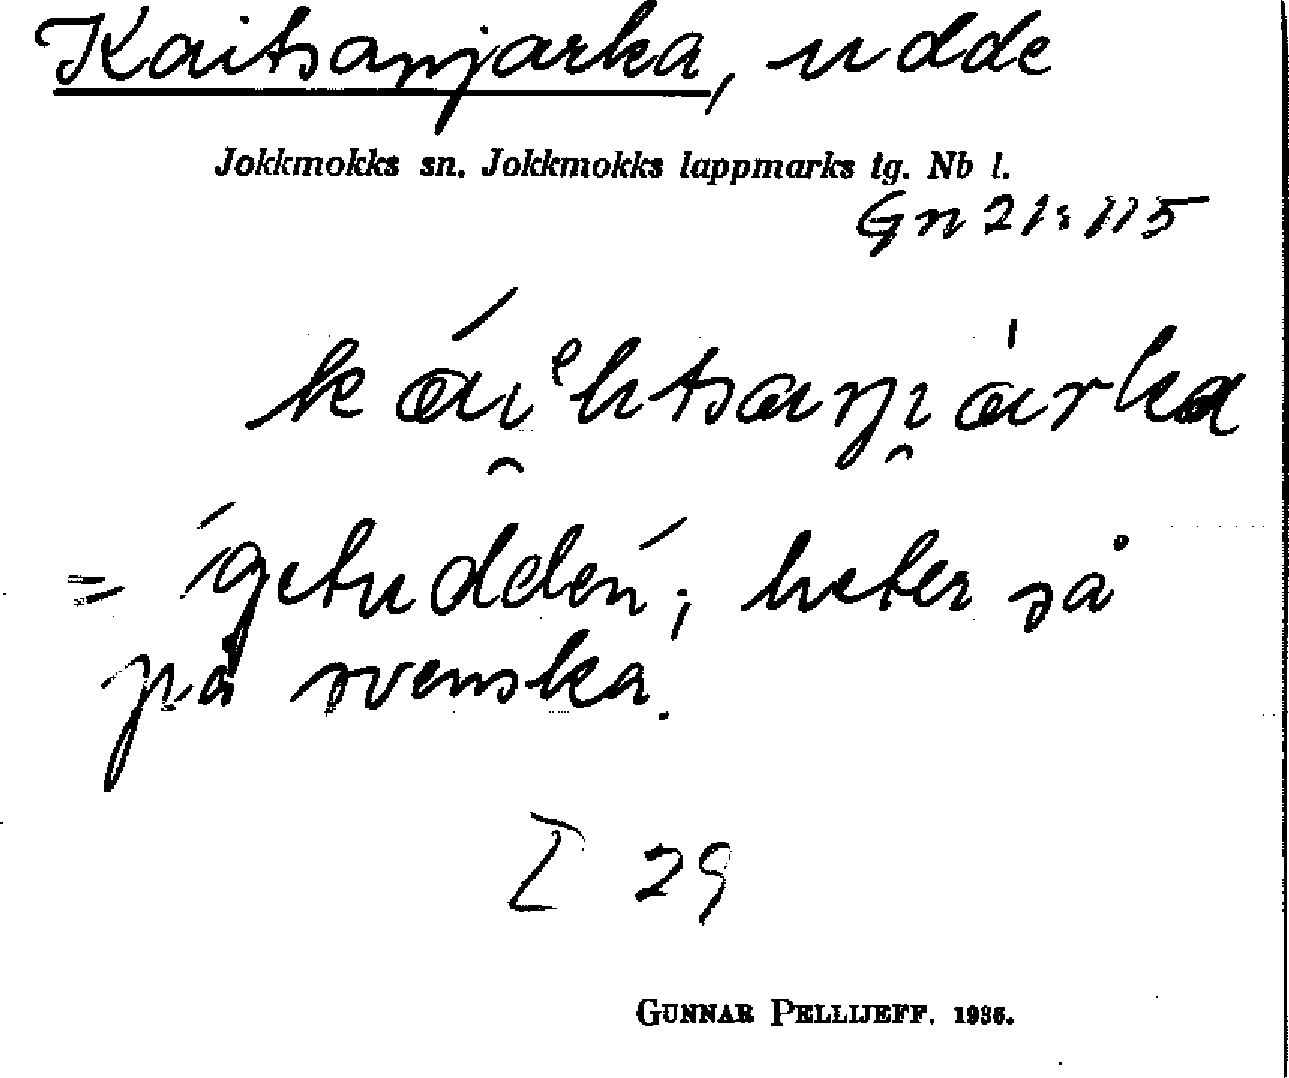 Kaitsanjarka, udde
Jokkmokks sn. Jokkmokks lappmarks tg. Nb l.
Gn 21:115
= 'getudden'; heter så
på svenska.
I 29
GUNNAR PELLIJEFF. 1936.